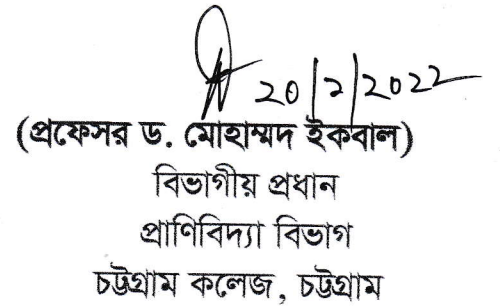 20/2/2022
(প্রফেসর ড. মোহাম্মদ ইকবাল)
বিভাগীয় প্রধান
প্রাণিবিদ্যা বিভাগ
চট্টগ্রাম কলেজ, চট্টগ্রাম